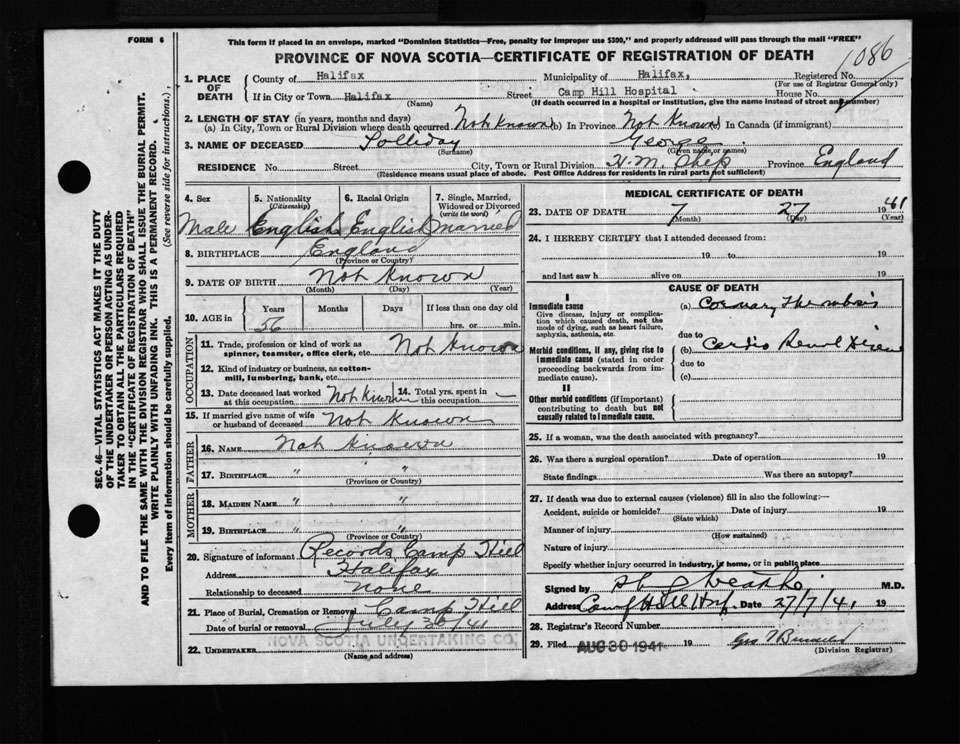 FORM 6
This form if placed in an envelope, marked "Dominion Statistics—Free, penalty for improper use $300," and properly addressed will pass through the mail "FREE"
PROVINCE OF NOVA SCOTIA—CERTIFICATE OF REGISTRATION OF DEATH
1086
1. PLACE OF DEATH County of Halifax Municipality of Halifax, Registered No.
(For use of Registrar General only)
If in City or Town Halifax Street Camp Hill Hospital House No.
(Name) (If death occurred in a hospital or institution, give the name instead of street and number)
2. LENGTH OF STAY (in years, months and days)
(a) In City, Town or Rural Division where death occurred Not Known (b) In Province Not Known (c) In Canada (if immigrant)
3. NAME OF DECEASED Solliday George
(Surname) (Given name or names)
RESIDENCE No. Street City, Town or Rural Division H.M. Ship Province England
(Residence means usual place of abode. Post Office Address for residents in rural parts not sufficient)
4. Sex 5. Nationality (Citizenship) 6. Racial Origin 7. Single, Married, Widowed or Divorced (write the word)
Male English English Married
8. BIRTHPLACE England
(Province or Country)
9. DATE OF BIRTH Not Known
(Month) (Day) (Year)
10. AGE in Years Months Days If less than one day old
56 hrs. or min.
OCCUPATION
11. Trade, profession or kind of work as spinner, teamster, office clerk, etc. Not Known
12. Kind of industry or business, as cotton-mill, lumbering, bank, etc.
13. Date deceased last worked at this occupation Not Known 14. Total yrs. spent in this occupation —
15. If married give name of wife or husband of deceased Not Known
FATHER
16. NAME Not Known
17. BIRTHPLACE " "
(Province or Country)
MOTHER
18. MAIDEN NAME " "
19. BIRTHPLACE " "
(Province or Country)
20. Signature of informant Records, Camp Hill
Address Halifax
Relationship to deceased None
21. Place of Burial, Cremation or Removal Camp Hill
Date of burial or removal July 30/41
NOVA SCOTIA UNDERTAKING CO.
22. UNDERTAKER
(Name and address)
MEDICAL CERTIFICATE OF DEATH
23. DATE OF DEATH 7 27 19 41
(Month) (Day) (Year)
24. I HEREBY CERTIFY that I attended deceased from:
19 to 19
and last saw h alive on 19
CAUSE OF DEATH
I
Immediate cause (a) Coronary Thrombosis
Give disease, injury or complication which caused death, not the mode of dying, such as heart failure, asphyxia, asthenia, etc.
due to
Morbid conditions, if any, giving rise to immediate cause (stated in order proceeding backwards from immediate cause). (b) Cardio Renal Disease
due to
(c)
II
Other morbid conditions (if important) contributing to death but not causally related to immediate cause.
25. If a woman, was the death associated with pregnancy?
26. Was there a surgical operation? Date of operation 19
State findings Was there an autopsy?
27. If death was due to external causes (violence) fill in also the following:—
Accident, suicide or homicide? Date of injury 19
(State which)
Manner of injury
(How sustained)
Nature of injury
Specify whether injury occurred in industry, in home, or in public place
Signed by M.D.
Address Camp Hill Hosp. Date 27/7/41 19
28. Registrar's Record Number
29. Filed AUG 30 1941 19
(Division Registrar)
SEC. 46—VITAL STATISTICS ACT MAKES IT THE DUTY
OF THE UNDERTAKER OR PERSON ACTING AS UNDER-
TAKER TO OBTAIN ALL THE PARTICULARS REQUIRED
IN THE "CERTIFICATE OF REGISTRATION OF DEATH"
AND TO FILE THE SAME WITH THE DIVISION REGISTRAR WHO SHALL ISSUE THE BURIAL PERMIT.
WRITE PLAINLY WITH UNFADING INK. THIS IS A PERMANENT RECORD.
Every item of information should be carefully supplied. (See reverse side for instructions.)